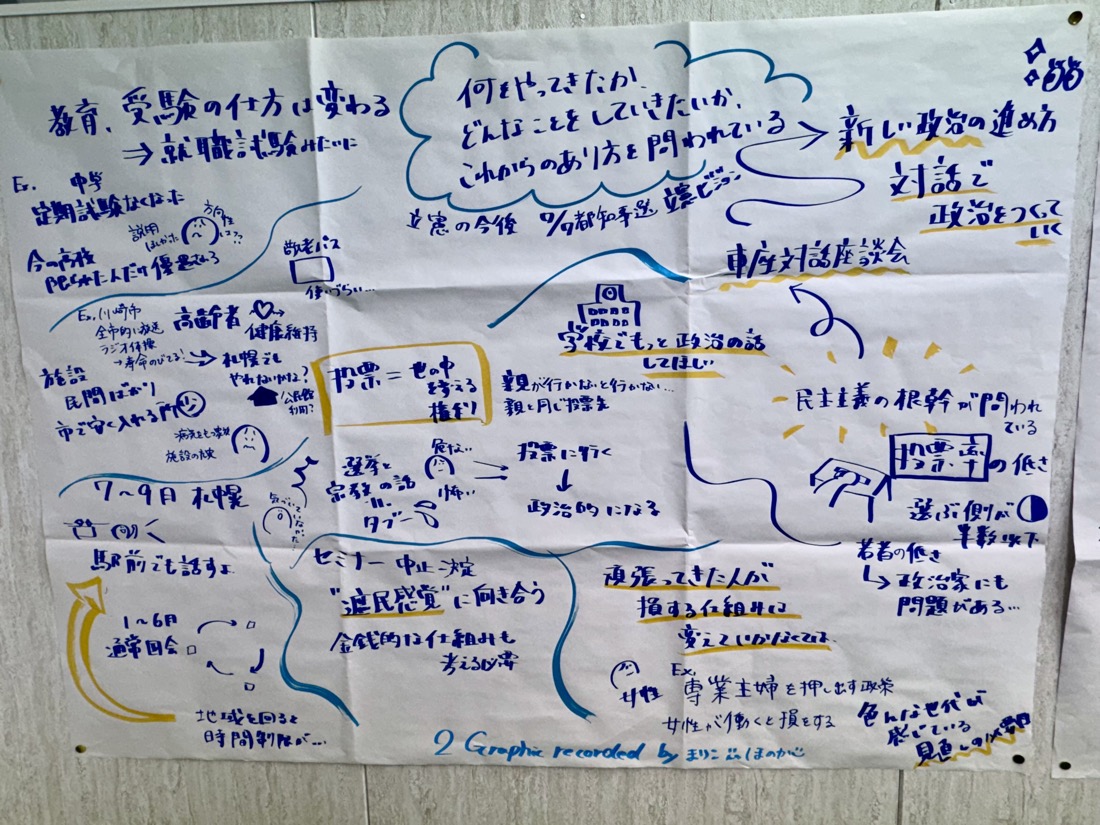 教育、受験の仕方は変わる
⇒ 就職試験みたいに
Ex. 中学
定期試験なくなった
説明
方向性
今の高校
何をやってきたか、
どんなことをしていきたいか、
これからのあり方を問われている
立憲の今後 都知事選 立憲ビジョン
新しい政治の進め方
対話で
政治をつくって
いく
車座対話座談会
敬老パス
使いづらい…
Ex. 川崎市
全市的に放送
ラジオ体操
→寿命のびてる!
高齢者
健康維持
札幌でも
やれないかな?
公民館
利用?
施設
民間ばかり
市で安く入れる所
施設の
投票=世の中
を考える
権利
学校でもっと政治の話
してほしい
親が行かないと行かない…
親と同じ投票先
選挙と
宗教の話
=
タブー
危ない
怖い
投票に行く
↓
政治的になる
民主主義の根幹が問われ
ている
投票率の低さ
選ぶ側が
半数以下
若者の低さ
↳ 政治家にも
問題がある…
7〜9月 札幌
駅前でも話すよ
1〜6月
通常国会
地域を回ると
時間制限が…
気づいていなかった!
セミナー 中止決定
"庶民感覚"に向き合う
金銭的な仕組みも
考える必要
頑張ってきた人が
損する仕組みは
変えていかなくては
女性
Ex.
専業主婦を押し出す政策
女性が働くと損をする
色んな世代が
感じている
見直しの必要性
2 Graphic recorded by まりこ